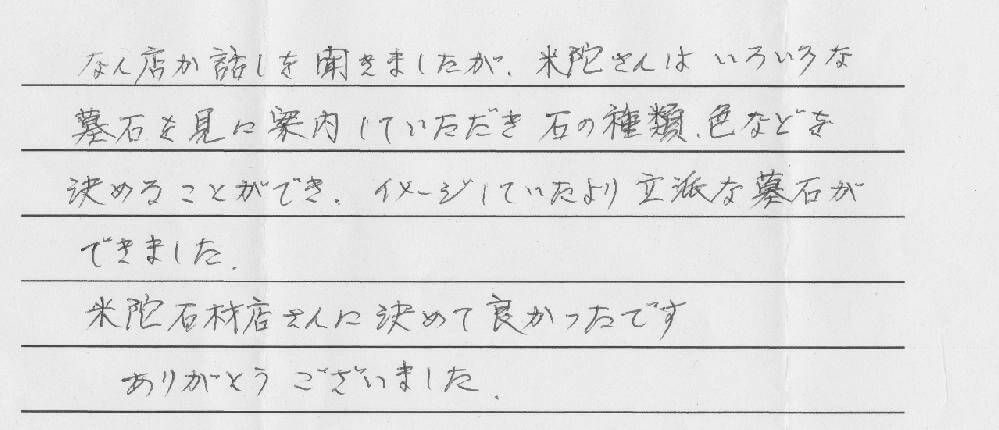 なん店か話しを聞きましたが、米陀さんはいろいろな
墓石を見に案内していただき石の種類、色などを
決めることができ、イメージしていたより立派な墓石が
できました。
米陀石材店さんに決めて良かったです
ありがとうございました。